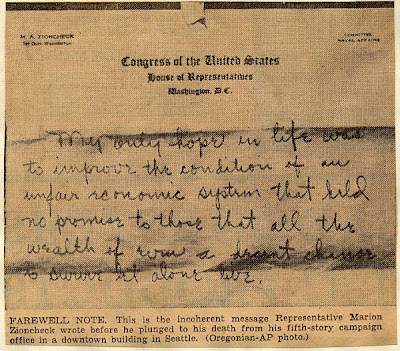 M. A. ZIONCHECK
Washington
COMMITTEE:
NAVAL AFFAIRS
Congress of the United States
House of Representatives
Washington, D.C.
My only hope in life was
to improve the condition of an
unfair economic system that held
no promise to those that all the
wealth of even a decent chance
to survive let alone live.
FAREWELL NOTE. This is the incoherent message Representative Marion
Zioncheck wrote before he plunged to his death from his fifth-story campaign
office in a downtown building in Seattle. (Oregonian-AP photo.)